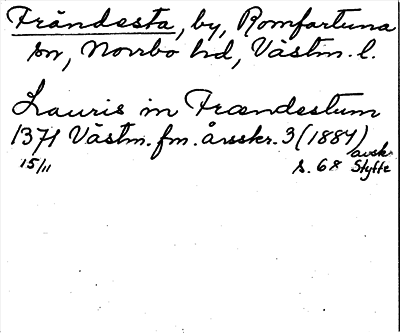 Frändesta, by, Romfartuna
sn, Norrbo hd, Västm. l.
Lauris in Frændestum
1371 Västm. fm. årsskr. 3 (1884)
15/11 s. 68 avskr. Styffe